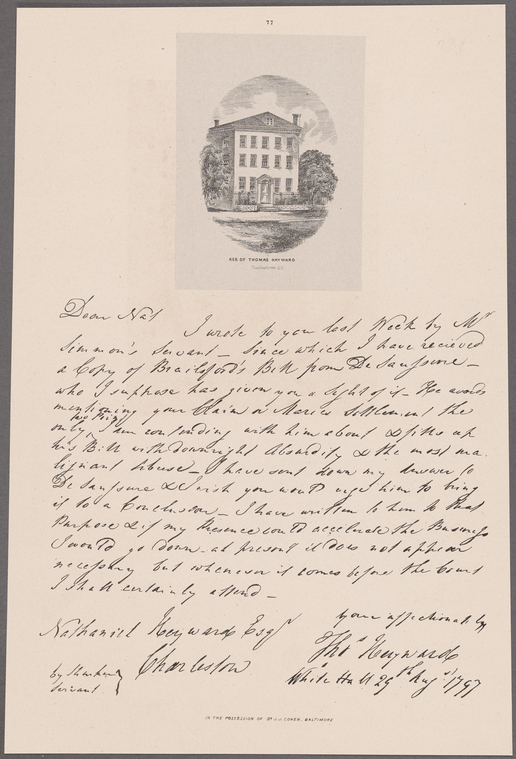 77
RES OF THOMAS HAYWARD
Charleston S.C.
Dear Nat
I wrote to you last Week by Mr
Simmon's Servant — Since which I have recieved
a Copy of Brailsford's Bill from De Saussure —
who I suppose has given you a Sight of it — He avoids
mentioning your Claim or Maria's Settlement the
only thing I am contending with him about & fills up
his Bill with downright Absurdity & the most ma
lignant Abuse — I have sent down my Answer to
De Saussure & I wish you would urge him to bring
it to a Conclusion — I have written to him to that
Purpose & if my Presence could accelerate the Business
I would go down — at present it does not appear
necessary but whenever it comes before the Court
I shall certainly attend —
your affectionately
Thos Heyward
White Hall 29th Augt 1797
Nathaniel Heyward Esqr
Charleston
by
Servant
IN THE POSSESSION OF DR J.J. COHEN, BALTIMORE